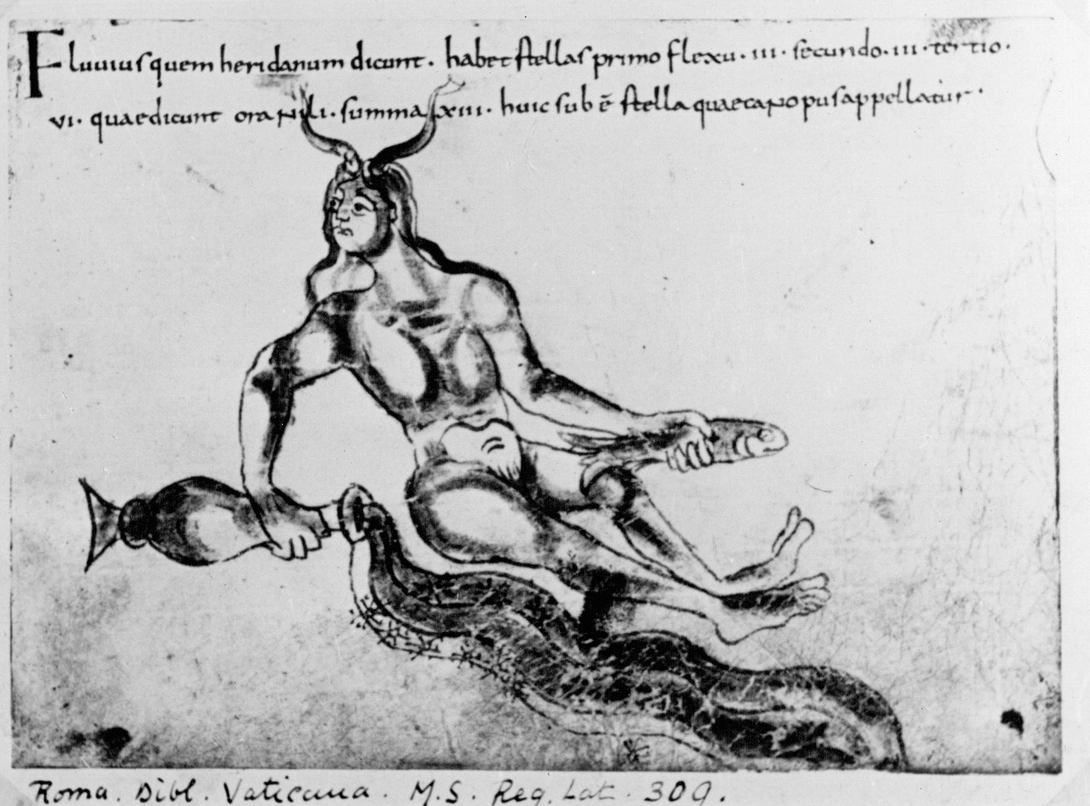 Fluuius quem heridanum dicunt · habet stellas primo flexu · III · secundo · III · tertio ·
VI · quae dicunt ora nili · summa XIII · huic sub ē stella quae canopus appellatur ·
Roma. Bibl. Vaticana. M.S. Reg. Lat. 309.